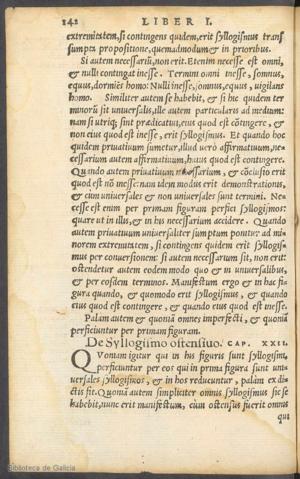 142 LIBER I.
extremitatem, si contingens quidem, erit syllogismus trans
sumpta propositione, quemadmodum & in prioribus.
Si autem necessariũ, non erit. Etenim necesse est omni,
& nulli contingat inesse. Termini omni inesse, somnus,
equus, dormiẽs homo: Nulli inesse, somnus, equus, vigilans
homo. Similiter autem se habebit, & si hic quidem ter
minorũ sit vniuersalis, ille autem particularis ad medium:
nam si vtriq; sint prædicatiui, eius quod est cõtingere, &
non eius quod est inesse, erit syllogismus. Et quando hoc
quidem priuatiuum sumetur, illud verò affirmatiuum, ne-
cessarium autem affirmatiuum, huius quod est contingere.
Quando autem priuatiuum necessarium, & cõclusio erit
quod est nõ inesse: nam idem modus erit demonstrationis,
& cùm vniuersales & non vniuersales sunt termini. Ne-
cesse est enim per primam figuram perfici syllogismos:
quare vt in illis, & in his necessarium accidere. Quando
autem priuatiuum vniuersaliter sumptum ponitur ad mi-
norem extremitatem, si contingens quidem erit syllogis-
mus per conuersionem: si autem necessarium sit, non erit:
ostendetur autem eodem modo quo & in vniuersalibus,
& per eosdem terminos. Manifestum ergo & in hac fi-
gura quando, & quomodo erit syllogismus, & quando
eius quod est contingere, & quando eius quod est inesse.
Palàm autem & quoniã omnes imperfecti, & quoniã
perficiuntur per primam figuram.
De Syllogismo ostensiuo. CAP. XXII.
QVoniam igitur qui in his figuris sunt syllogismi,
perficiuntur per eos qui in prima figura sunt vni-
uersales syllogismos, & in hos reducuntur, palàm ex di-
ctis fit. Quoniã autem simpliciter omnis syllogismus sic se
habebit, nunc erit manifestum, cùm ostensus fuerit omnis
qui
Biblioteca de Galicia